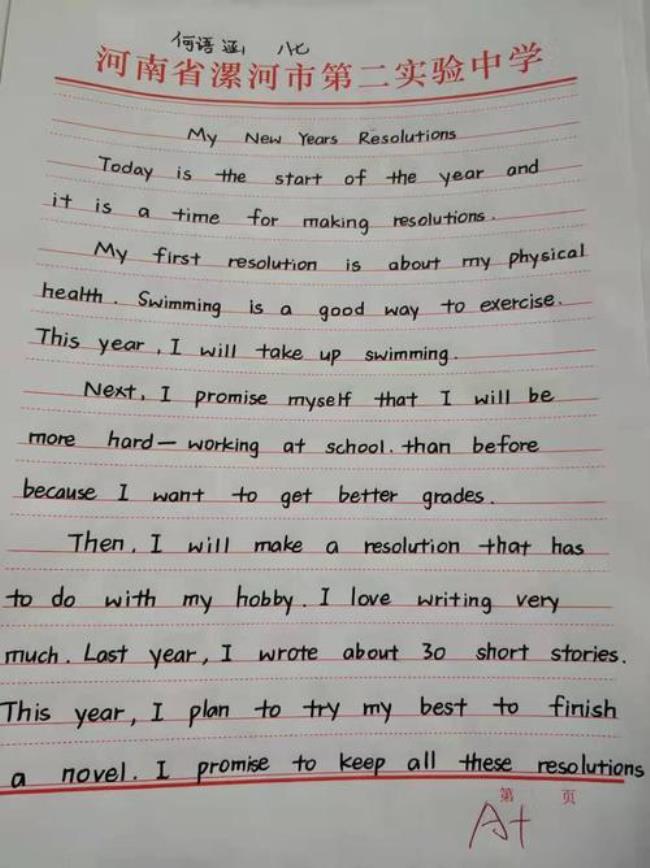 何语涵 八七
河南省漯河市第二实验中学
My New Years Resolutions
Today is the start of the year and
it is a time for making resolutions.
My first resolution is about my physical
health. Swimming is a good way to exercise.
This year, I will take up swimming.
Next, I promise myself that I will be
more hard-working at school. than before
because I want to get better grades.
Then, I will make a resolution that has
to do with my hobby. I love writing very
much. Last year, I wrote about 30 short stories.
This year, I plan to try my best to finish
a novel. I promise to keep all these resolutions
第 页
A+